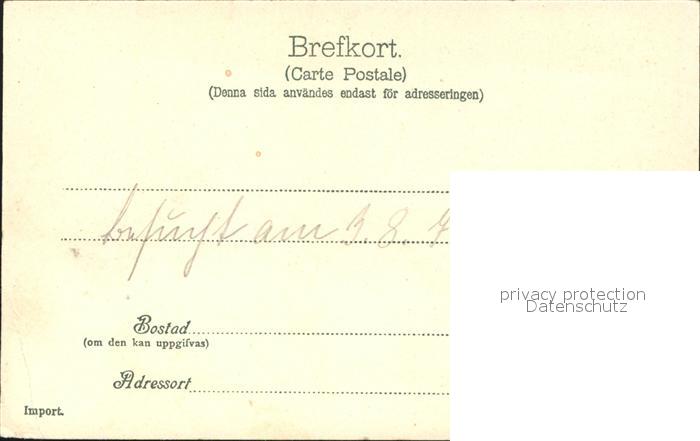 Brefkort.
(Carte Postale)
(Denna sida användes endast för adresseringen)
besucht am 3. 8.
privacy protection
Datenschutz
Bostad
(om den kan uppgifvas)
Adressort
Import.